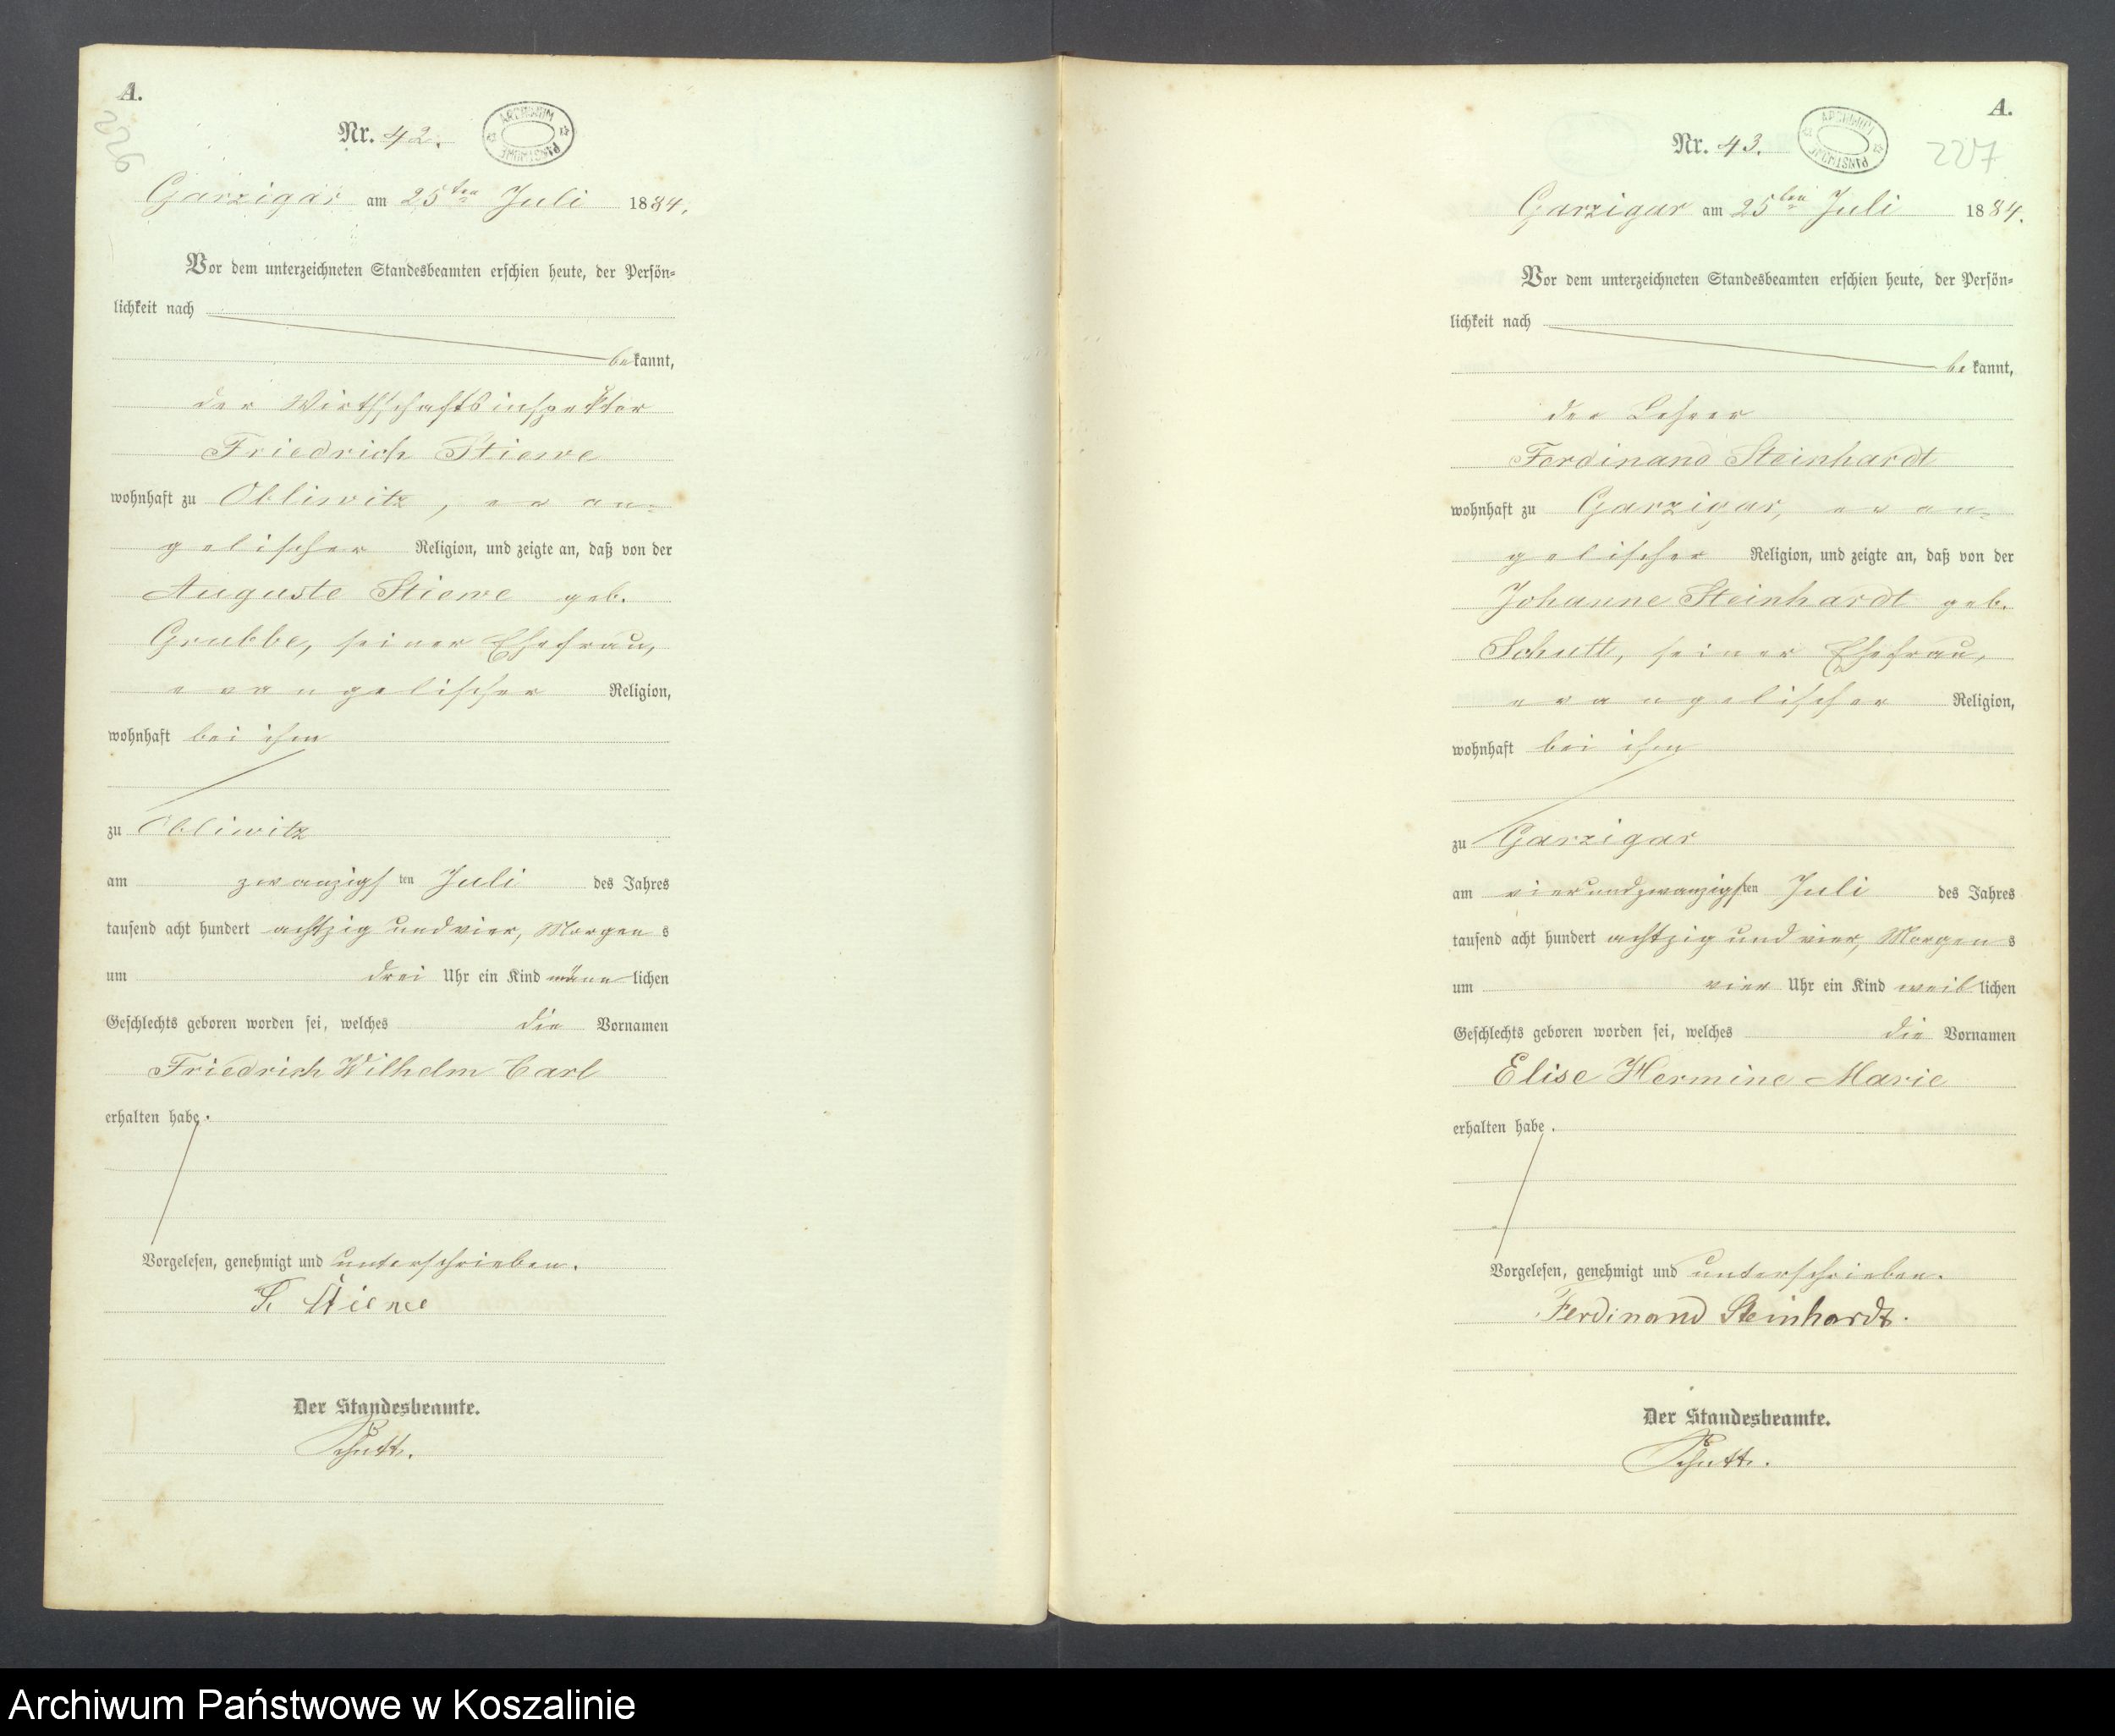 A.
226
Nr. 42.
ARCHIWUM PAŃSTWOWE
Garzigar am 25ten Juli 1884.
Vor dem unterzeichneten Standesbeamten erschien heute, der Persön=
lichkeit nach
bekannt,
der Wirthschaftsinspektor
Friedrich Stiewe
wohnhaft zu Obliwitz, evan=
gelischer Religion, und zeigte an, daß von der
Auguste Stiewe geb.
Grubbe, seiner Ehefrau,
evangelischer Religion,
wohnhaft bei ihm
zu Obliwitz
am zwanzigsten Juli des Jahres
tausend acht hundert achtzig und vier, Morgens
um drei Uhr ein Kind männlichen
Geschlechts geboren worden sei, welches die Vornamen
Friedrich Wilhelm Carl
erhalten habe.
Vorgelesen, genehmigt und unterschrieben.
F. Stiewe
Der Standesbeamte.
Schutt.
A.
227
Nr. 43.
ARCHIWUM PAŃSTWOWE
Garzigar am 25ten Juli 1884.
Vor dem unterzeichneten Standesbeamten erschien heute, der Persön=
lichkeit nach
bekannt,
der Lehrer
Ferdinand Steinhardt
wohnhaft zu Garzigar, evan=
gelischer Religion, und zeigte an, daß von der
Johanne Steinhardt geb.
Schutt, seiner Ehefrau,
evangelischer Religion,
wohnhaft bei ihm
zu Garzigar
am vierundzwanzigsten Juli des Jahres
tausend acht hundert achtzig und vier, Morgens
um vier Uhr ein Kind weiblichen
Geschlechts geboren worden sei, welches die Vornamen
Elise Hermine Marie
erhalten habe.
Vorgelesen, genehmigt und unterschrieben.
Ferdinand Steinhardt.
Der Standesbeamte.
Schutt.
Archiwum Państwowe w Koszalinie